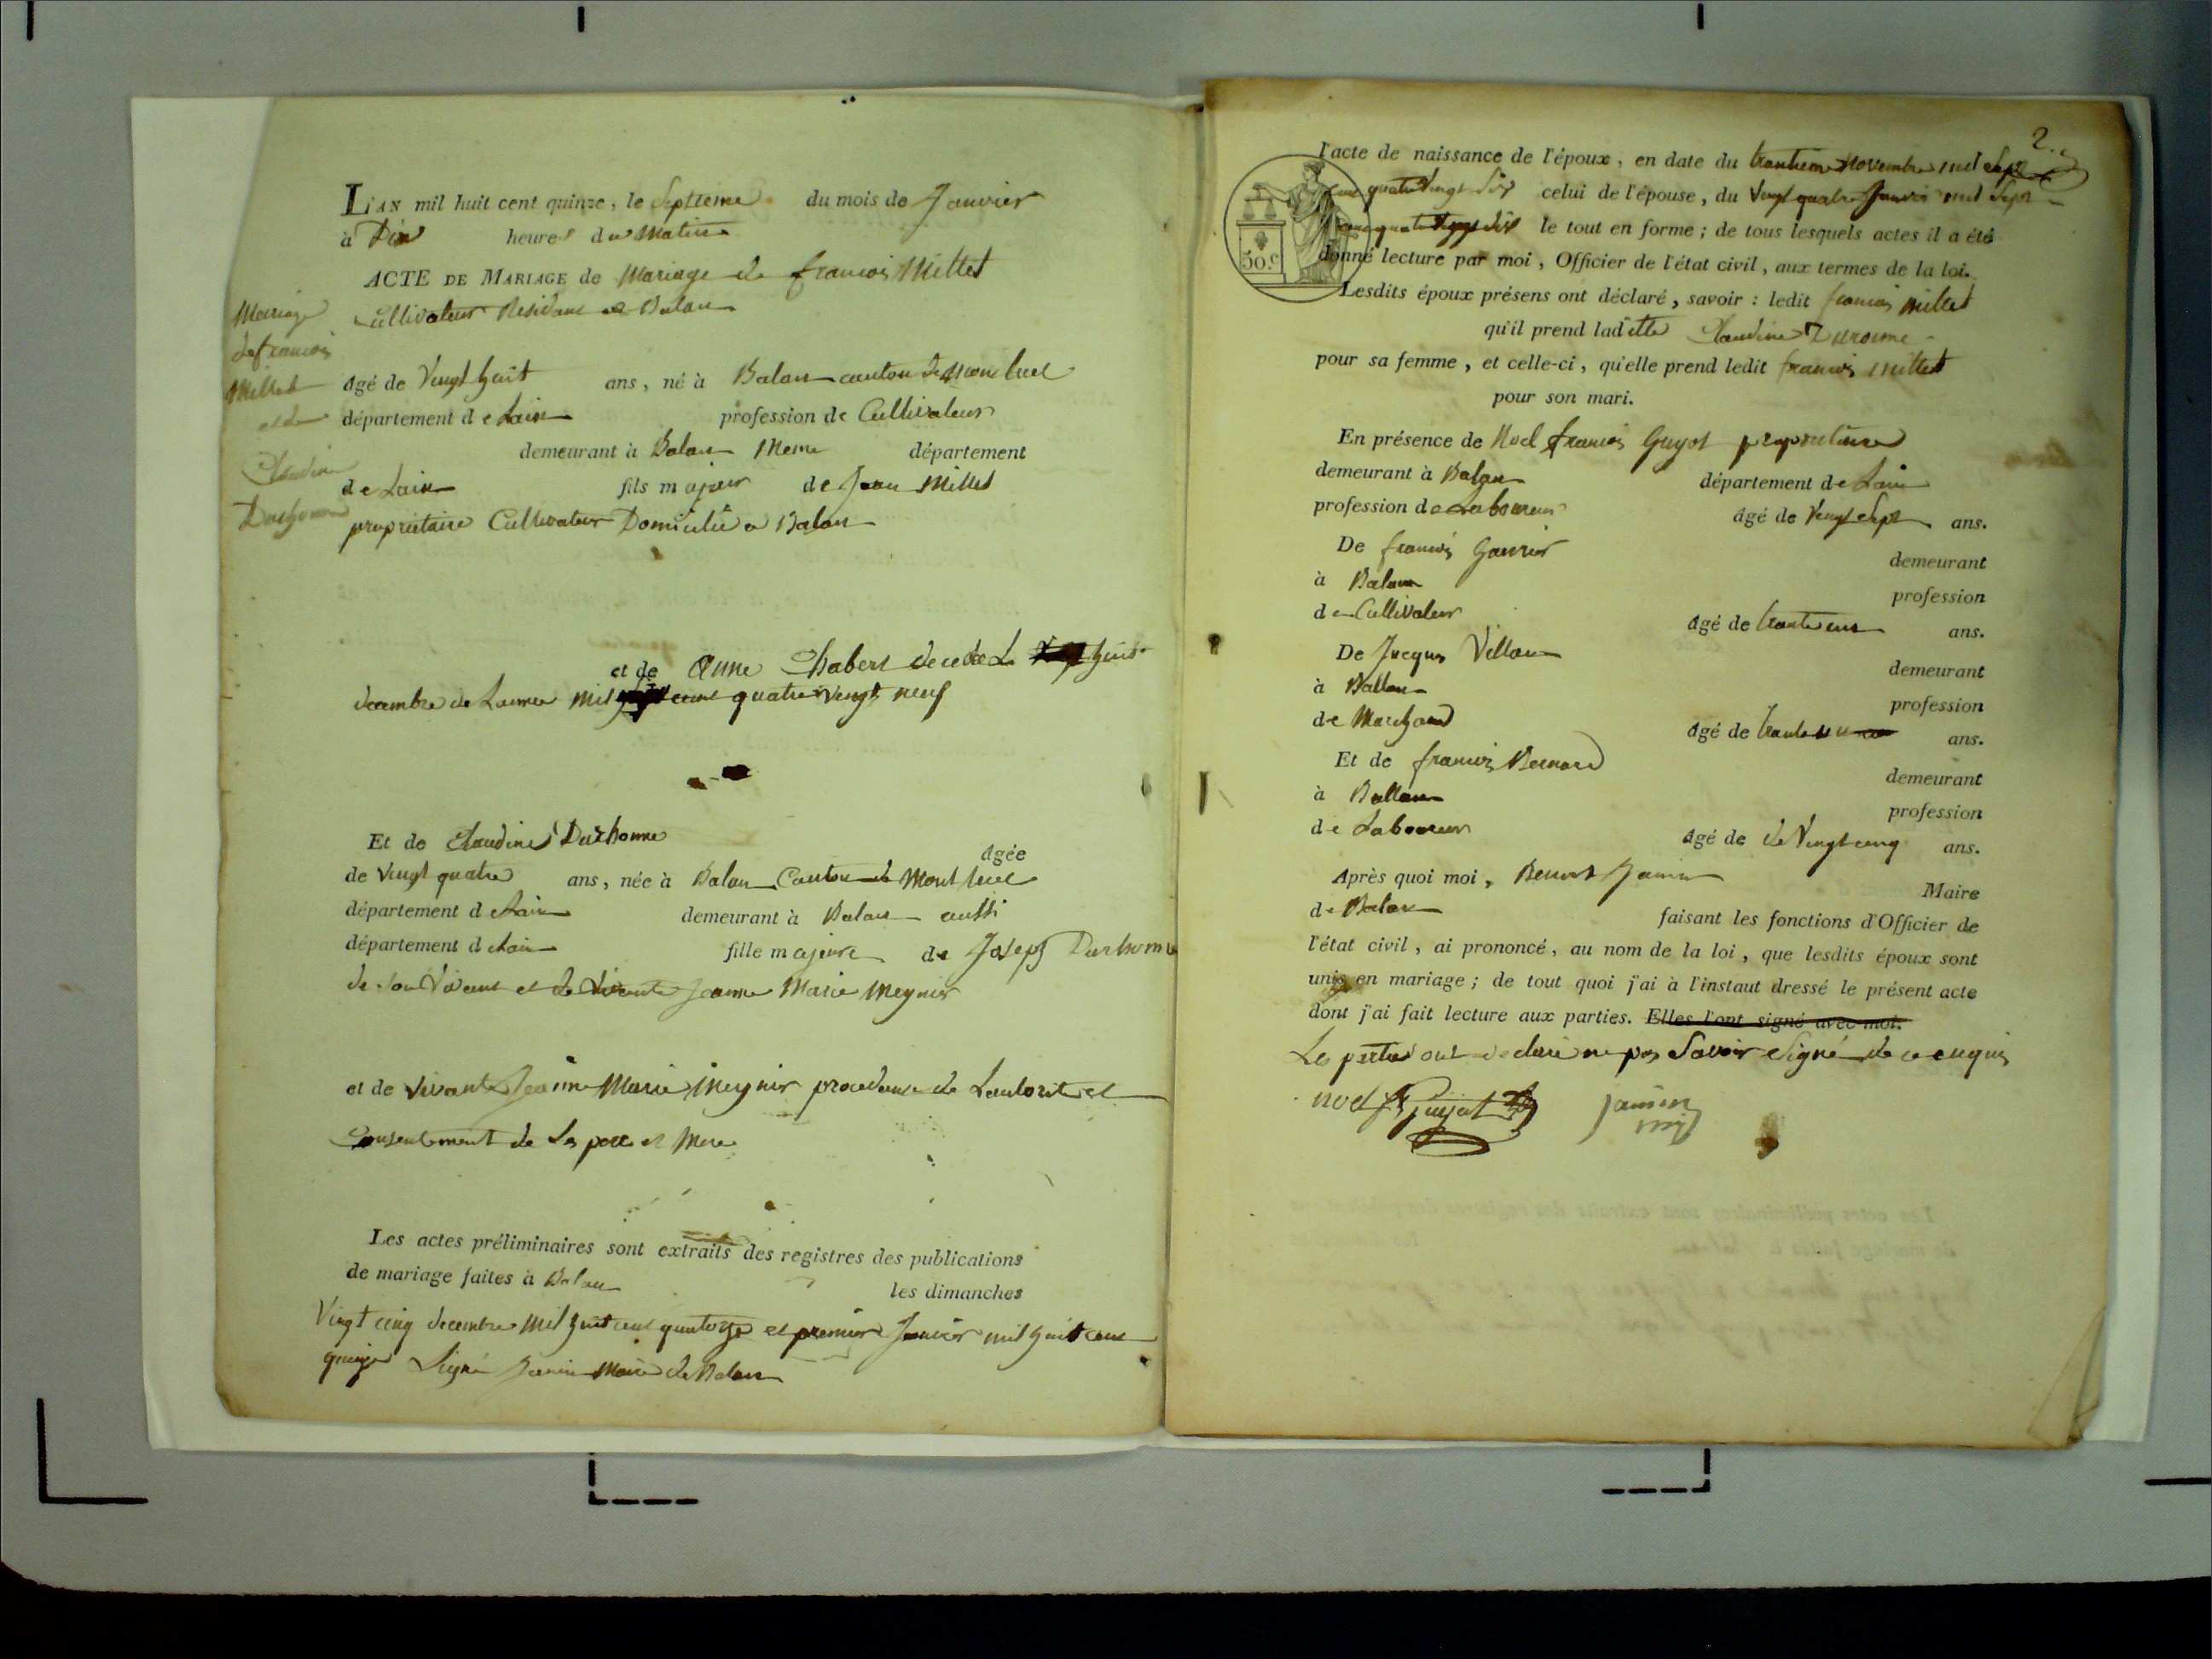 L'AN mil huit cent quinze, le Septieme du mois de Janvier
à Dix heures du Matin
ACTE DE MARIAGE de Mariage de francois Millet
Cultivateur Residant a Balan
Mariage
de francois
Millet
et de
Claudine
Durhomme
Agé de Vingt huit ans, né à Balan canton de Montluel
département de Lain profession de Cultivateur
demeurant à Balan Meme département
de Lain fils majeur de Jean Millet
propriétaire Cultivateur Domicilié a Balan
et de Anne Chabert decedee Le huit
decembre de Lannee mil cent quatre vingt neuf
Et de Claudine Durhomme
Agée
de vingt quatre ans, née à Balan Canton de Montluel
département de Lain demeurant à Balan aussi
département de Lain fille majeure de Joseph Durhomme
de son Vivant et de Vivante Jeanne Marie Meynier
et de vivante Jeanne Marie Meynier procedante de Lautorite et
Consentement de Ses pere et Mere
Les actes préliminaires sont extraits des registres des publications
de mariage faites à Balan les dimanches
Vingt cinq decembre mil huit cent quatorze et premier Janvier mil huit cent
quinze Signé Janin Maire de Balan
2.
l'acte de naissance de l'époux, en date du trantieme Novembre mil sept
cent quatre Vingt Six celui de l'épouse, du Vingt quatre Janvier mil Sept
cent quatre vingt dix le tout en forme; de tous lesquels actes il a été
50.c
donné lecture par moi, Officier de l'état civil, aux termes de la loi.
Lesdits époux présens ont déclaré, savoir: ledit francois Millet
qu'il prend ladette Claudine
pour sa femme, et celle-ci, qu'elle prend ledit francois Millet
pour son mari.
En présence de Noel francois Guyot
demeurant à Balan département de Lain
profession de Laboureur âgé de Vingt Sept ans.
De francois
demeurant
à Balan
profession
de Cultivateur
âgé de trante ans.
De Jacques Villan
demeurant
à Ballan
profession
de Marchand
âgé de trante ans.
Et de francois Bernard
demeurant
à Ballan
profession
de Laboureur
âgé de de Vingt cinq ans.
Après quoi moi, Benoit Janin Maire
de Balan faisant les fonctions d'Officier de
l'état civil, ai prononcé, au nom de la loi, que lesdits époux sont
unis en mariage; de tout quoi j'ai à l'instant dressé le présent acte
dont j'ai fait lecture aux parties. Elles l'ont signé avec moi.
Les parties ont declaré ne pas Savoir Signé de ce enquis
noel fs guyot Janin